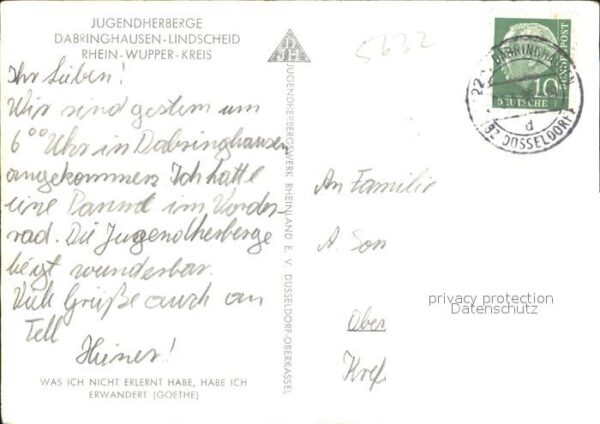 JUGENDHERBERGE
DABRINGHAUSEN-LINDSCHEID
RHEIN-WUPPER-KREIS
Ihr Lieben!
Wir sind gestern um
6⁰⁰ Uhr in Dabringhausen
angekommen. Ich hatte
eine Panne im Vorder-
rad. Die Jugendherberge
liegt wunderbar.
Viele Grüße auch an
Tell
Heiner!
WAS ICH NICHT ERLERNT HABE, HABE ICH
ERWANDERT (GOETHE)
DJH
JUGENDHERBERGSWERK RHEINLAND E. V. DÜSSELDORF-OBERKASSEL
5632
10
DEUTSCHE BUNDESPOST
22 DABRINGHAUSEN
d
(BZ DÜSSELDORF)
An Familie
A. Son
Ober
Kref
privacy protection
Datenschutz